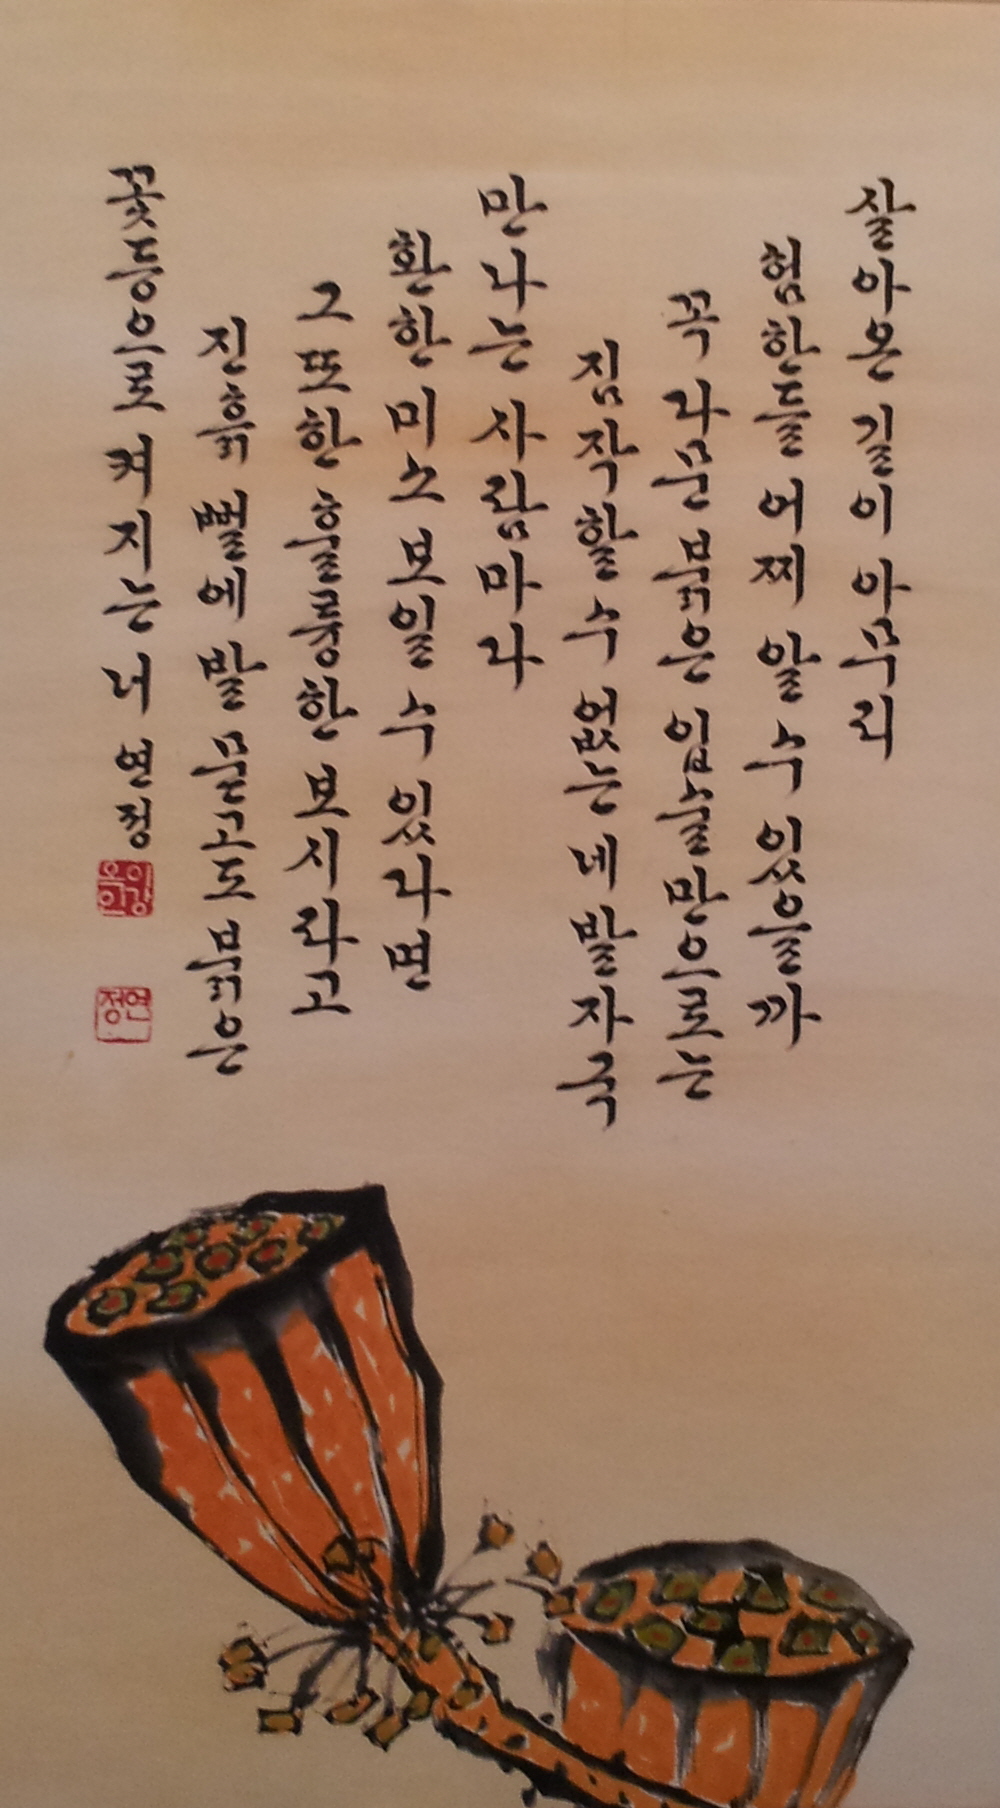 살아온 길이 아무리
험한들 어찌 알 수 있을까
꼭 다문 붉은 입술만으로는
짐작할 수 없는 네 발자국
만나는 사람마다
환한 미소 보일 수 있다면
그 또한 훌륭한 보시라고
진흙 뻘에 발 묻고도 붉은
꽃등으로 켜지는 너 연정
이강
옥인
연정